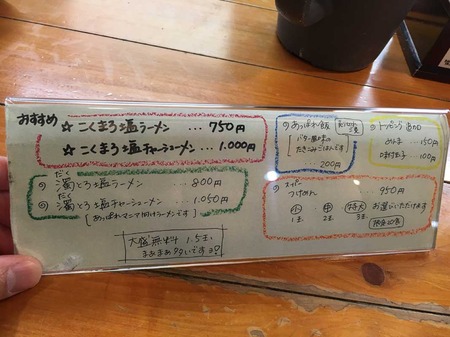 おすすめ
☆ こくまろ塩ラーメン … 750円
☆ こくまろ塩チャーシューメン … 1.000円
だく
濁とろ塩ラーメン … 800円
だく
濁とろ塩チャーシューメン … 1.050円
[あっぱれマニア向けラーメンです]
大盛無料 1.5玉、
まあまあ多いですヨ!
あっぱれ飯
バター風味の
たきこみごはんです
200円
トッピング
めんま … 150円
味付玉子 … 100円
スーパー
つけめん … 950円
小 中 特大 お選びいただけます
1玉 2玉 3玉
限定20食